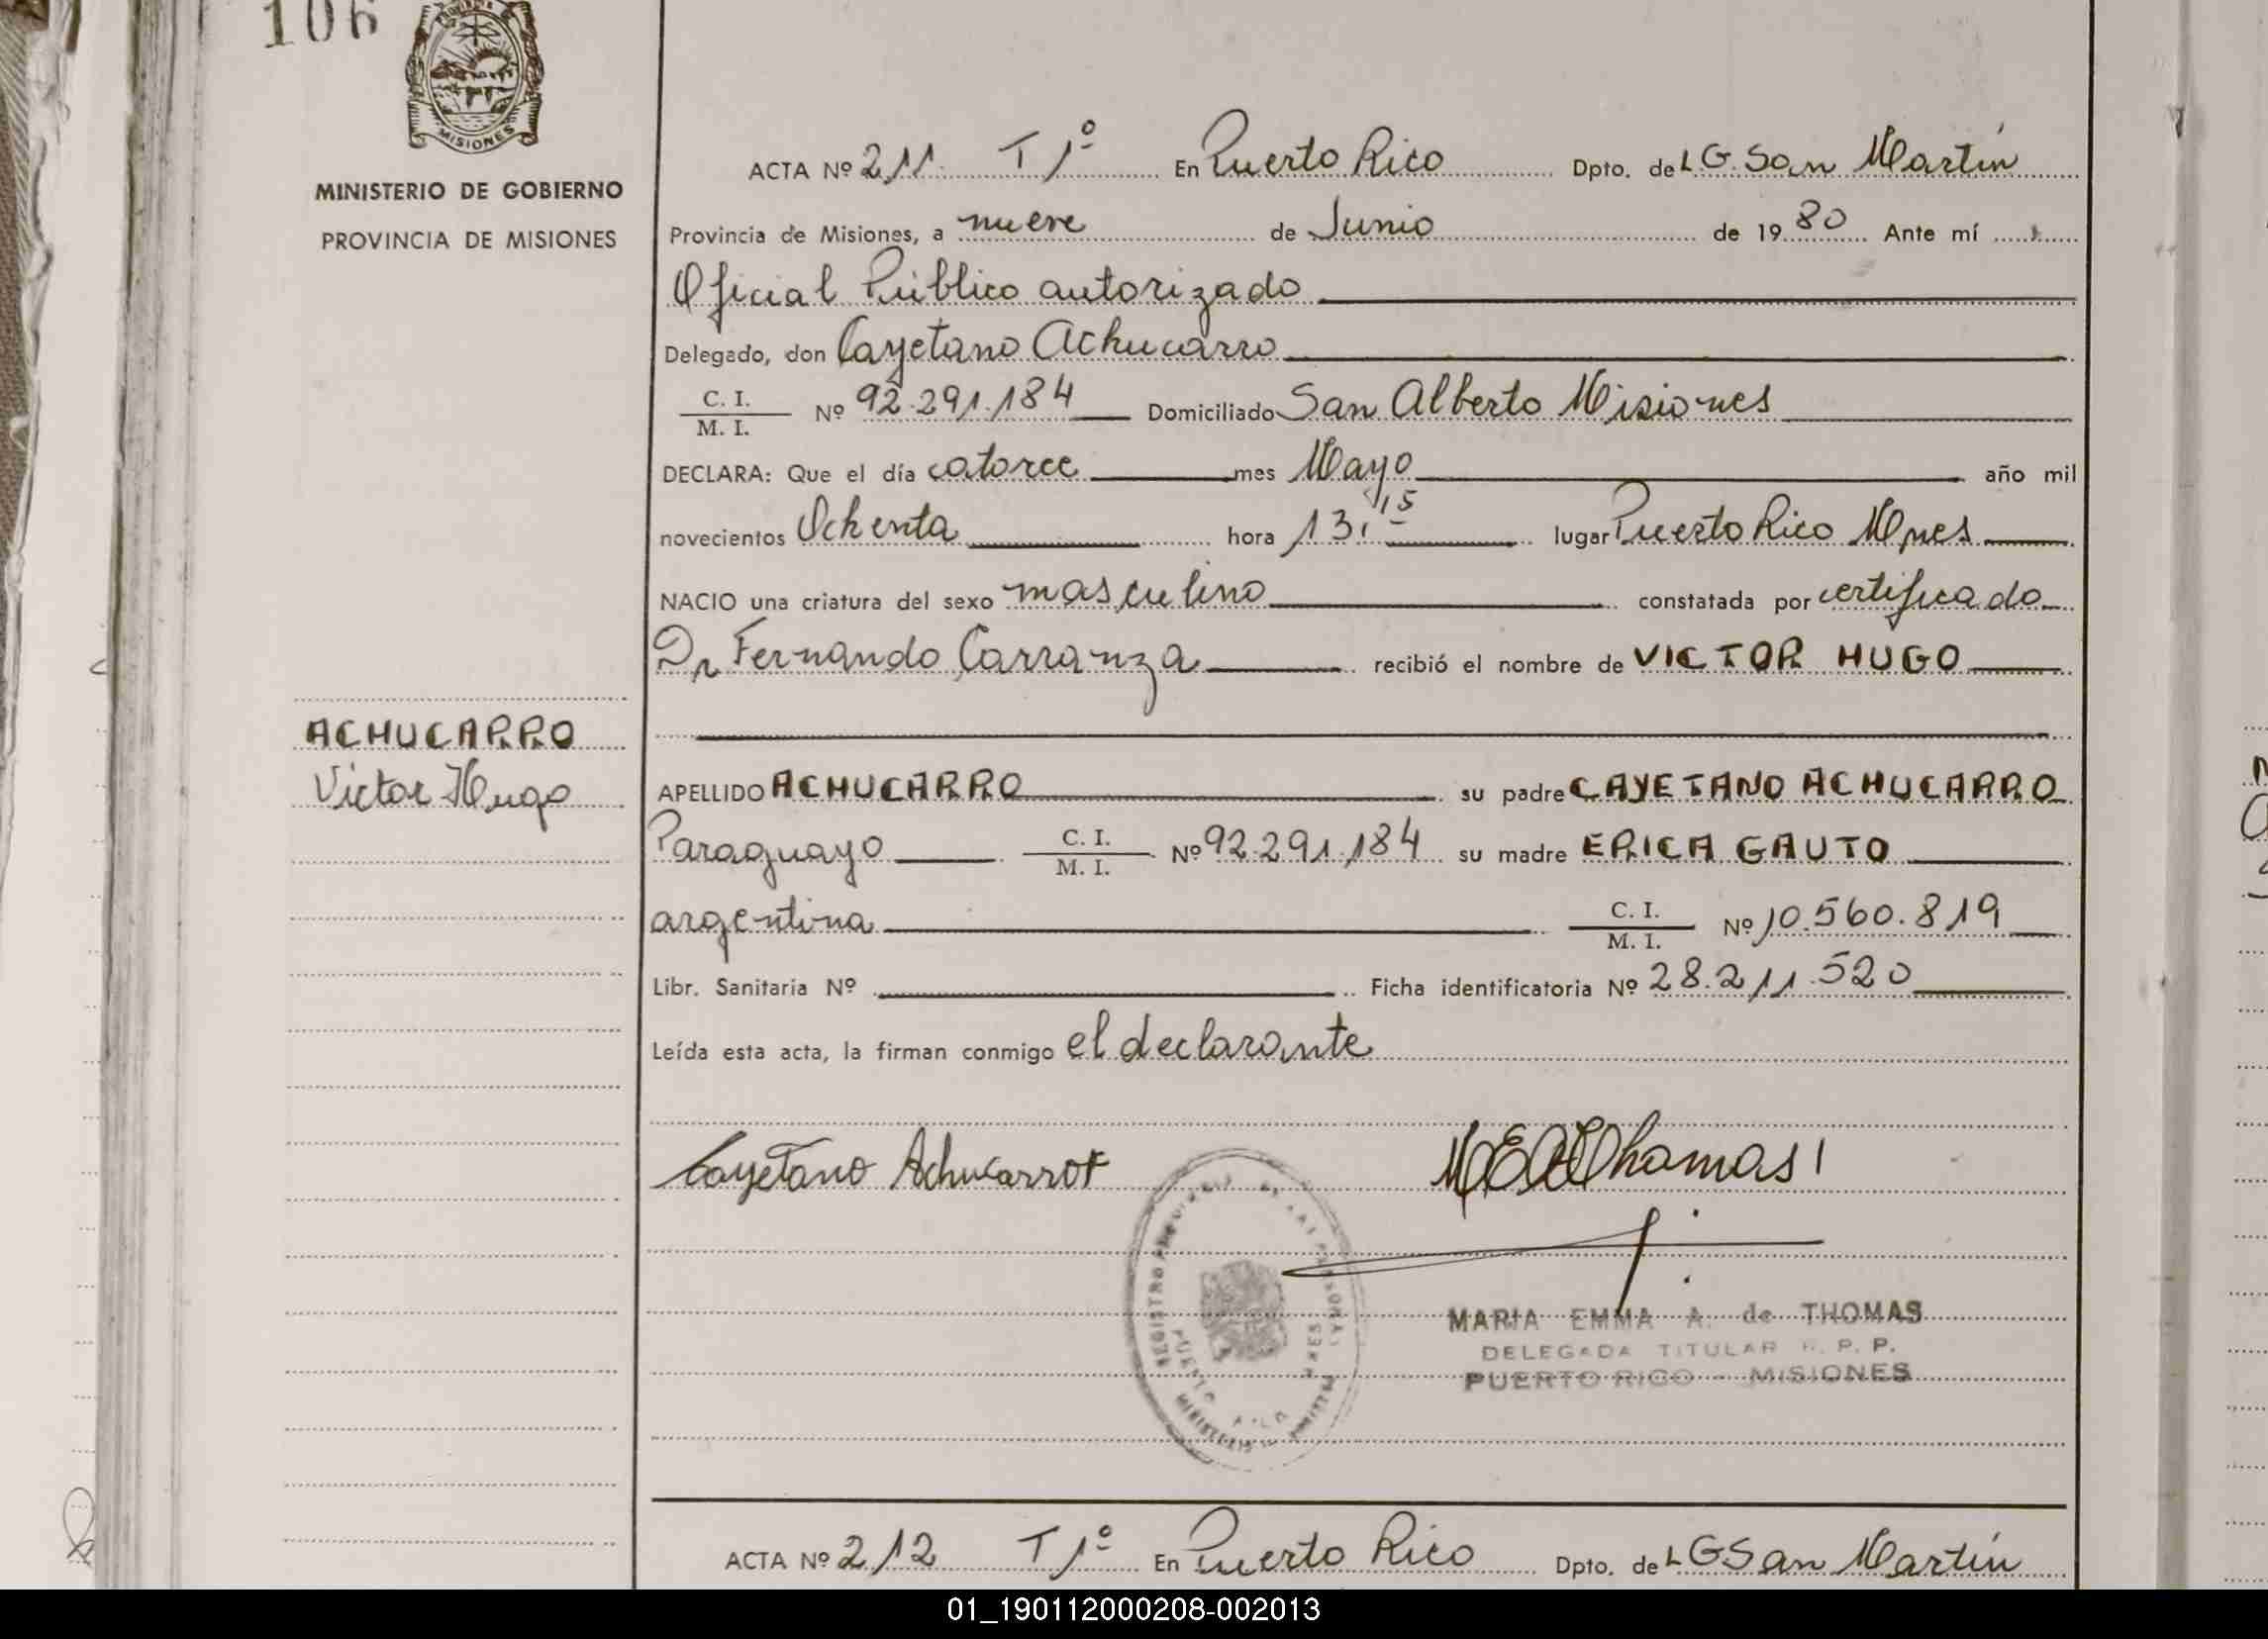 106
MISIONES
MINISTERIO DE GOBIERNO
PROVINCIA DE MISIONES
ACTA Nº 211 T 1º En Puerto Rico Dpto. de L G. San Martín
Provincia de Misiones, a nueve de Junio de 1980 Ante mí
Oficial Público autorizado
Delegado, don Cayetano Achucarro
C. I.
M. I. Nº 92.291.184 Domiciliado San Alberto Misiones
DECLARA: Que el día catorce mes Mayo año mil
novecientos Ochenta hora 13,15 lugar Puerto Rico Mnes
NACIO una criatura del sexo masculino constatada por certificado
Dr Fernando Carranza recibió el nombre de VICTOR HUGO
ACHUCARRO
Victor Hugo
APELLIDO ACHUCARRO su padre CAYETANO ACHUCARRO
Paraguayo C. I. M. I. Nº 92.291.184 su madre ERICA GAUTO
argentina C. I. M. I. Nº 10.560.819
Libr. Sanitaria Nº Ficha identificatoria Nº 28.211.520
Leída esta acta, la firman conmigo el declarante
Cayetano Achucarro
Thomas
MARIA EMMA A. de THOMAS
DELEGADA TITULAR R. P. P.
PUERTO RICO - MISIONES
ACTA Nº 212 T 1º En Puerto Rico Dpto. de L G San Martín
01_190112000208-002013